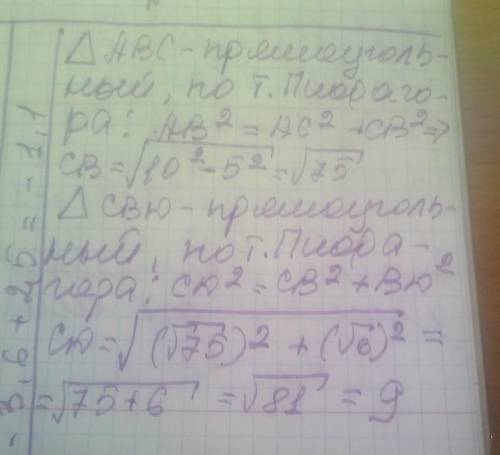 △ ABC - прямоуголь-
ный, по т. Пифаго-
ра: AB² = AC² + CB² ⇒
CB = √10² - 5² = √75
△ CBЮ - прямоуголь-
ный, по т. Пифа-
гора: CЮ² = CB² + BЮ²
CЮ = √(√75)² + (√6)² =
= √75 + 6 = √81 = 9
- 3,6 + 2,5 = - 1,1